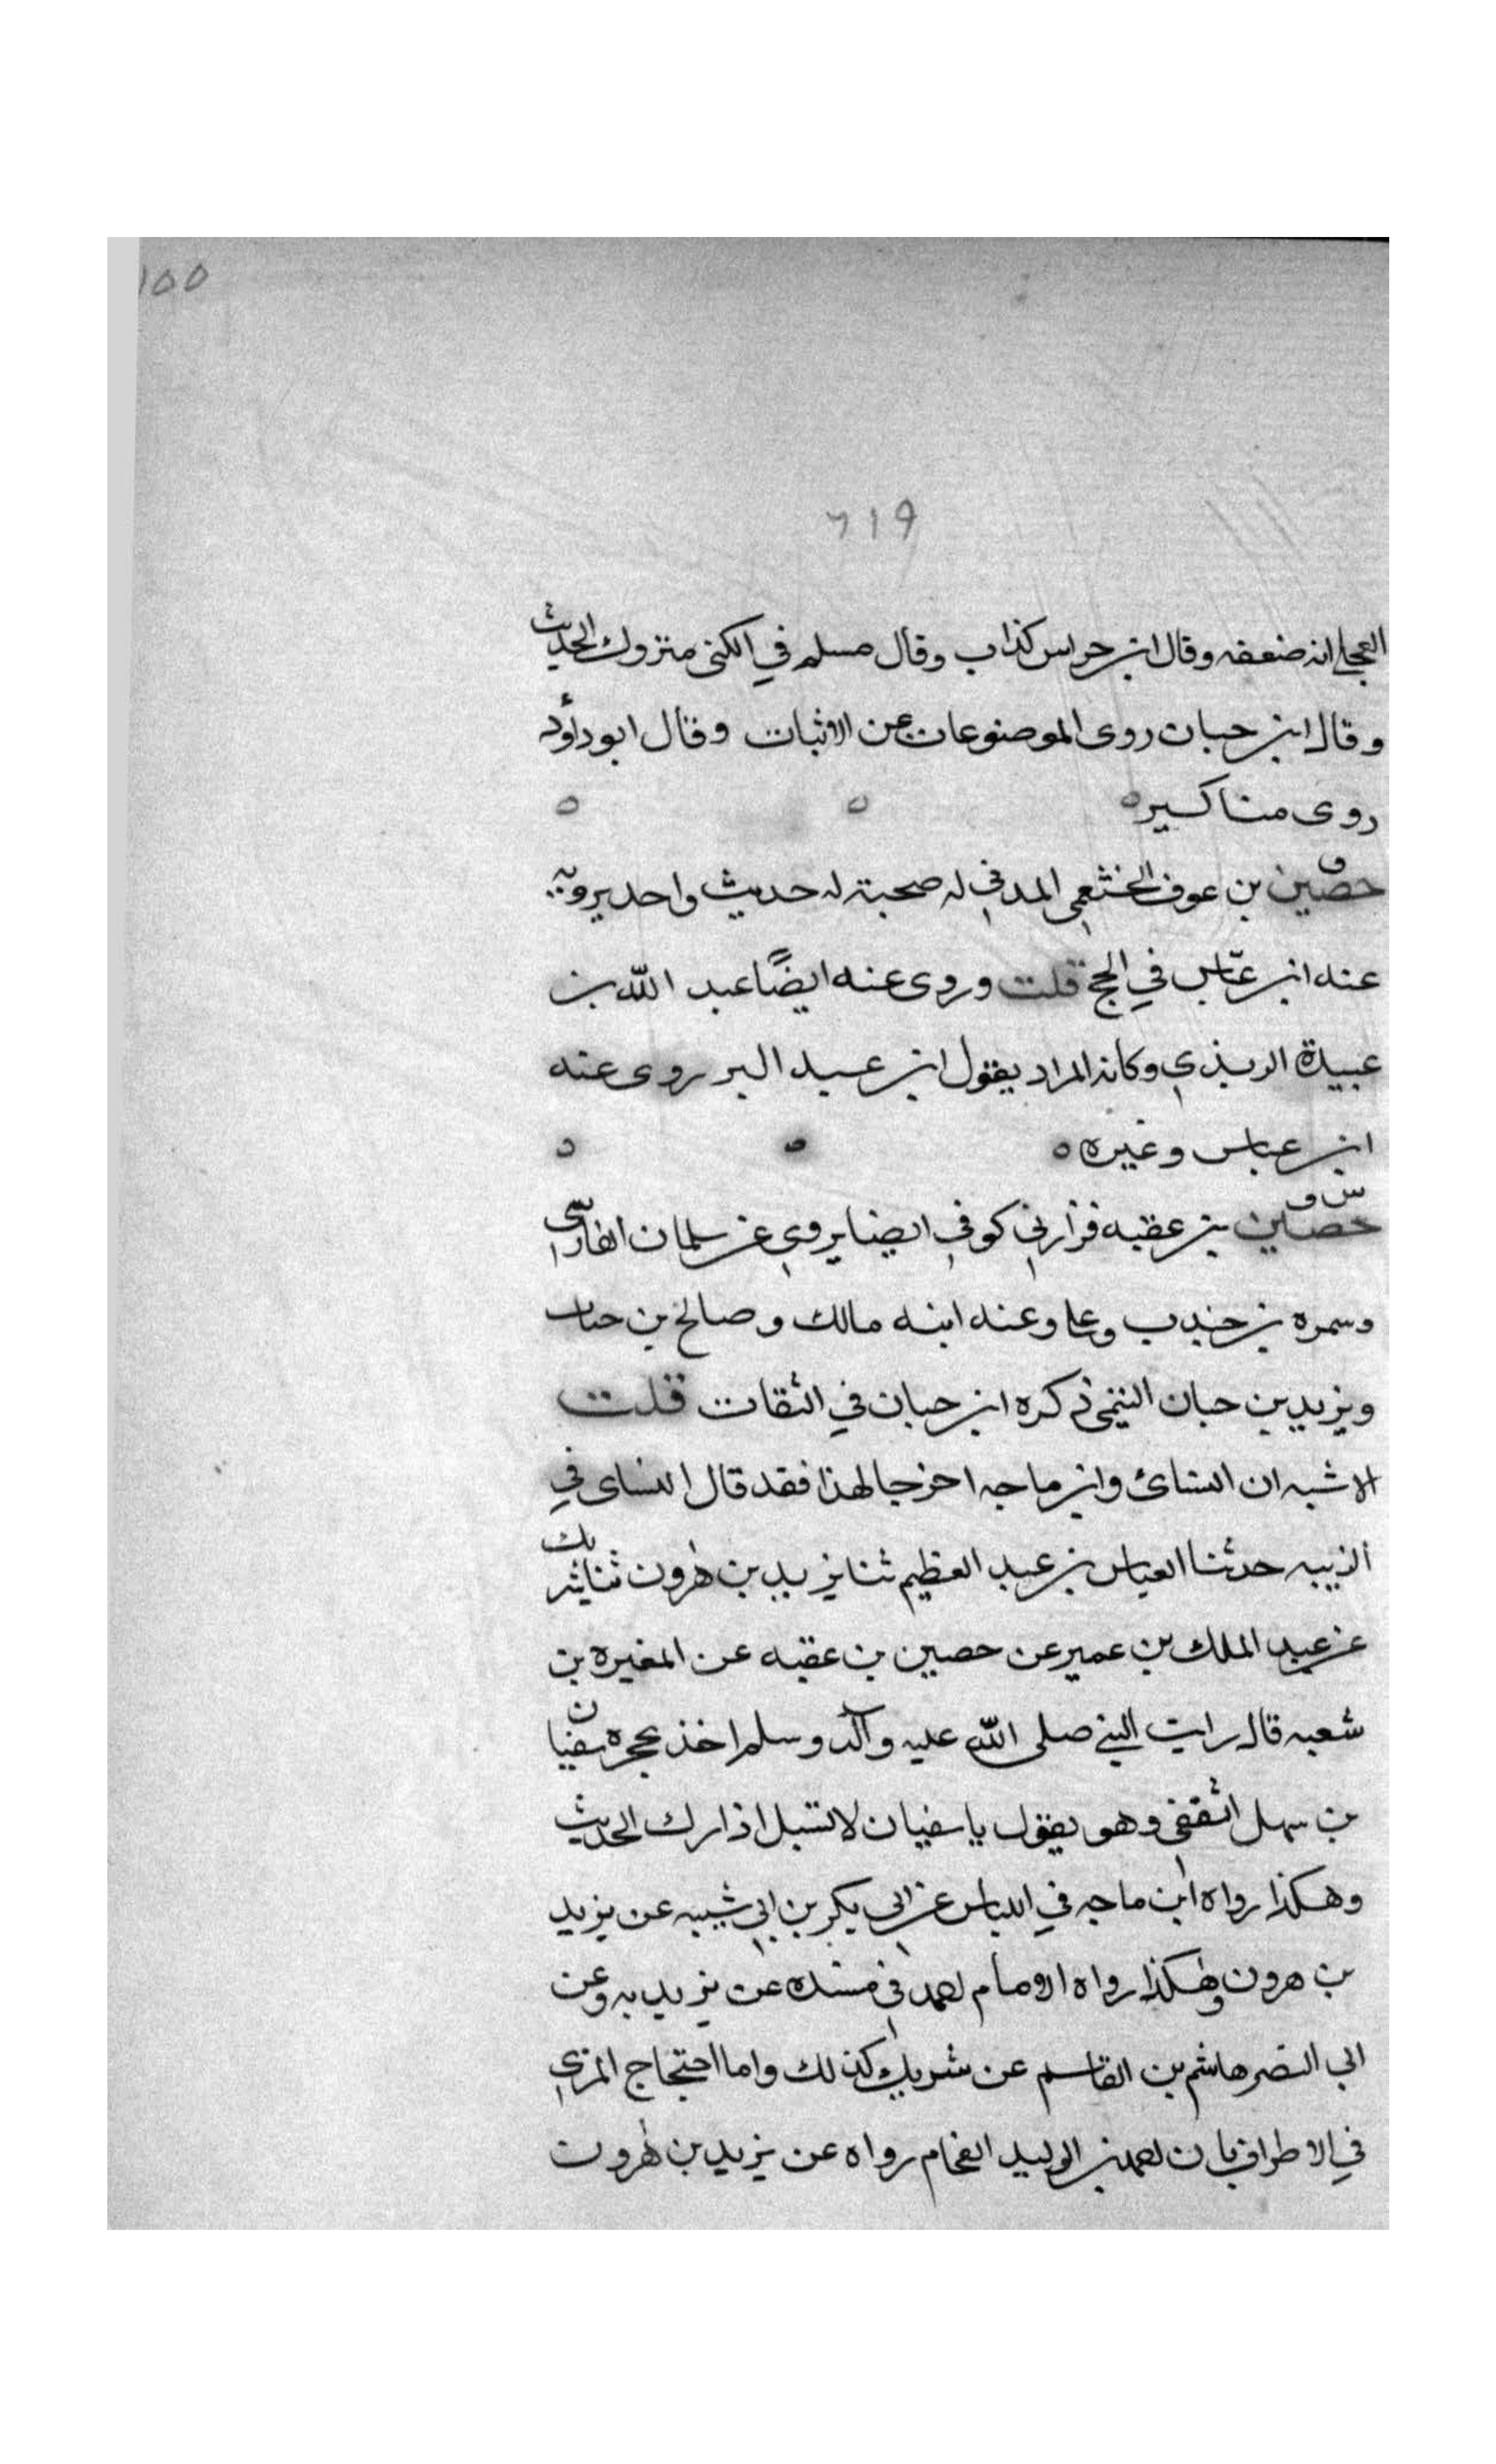 ١٥٥
٦١٩
العجلي انه ضعفه وقال ابن حراس كذاب وقال مسلم في الكنى متروك الحديث
وقال ابن حبان روى الموضوعات عن الاثبات وقال ابو داؤد
روى مناكير ه ه ه
ق
حصين بن عوف الخثعمي المدني له صحبة له حديث واحد يرويه
عنه ابن عبّاس في الحج قلت وروى عنه ايضًا عبد الله بن
عبيدة الربذي وكانه المراد يقول ابن عبد البر روى عنه
ابن عباس وغيره ه ه ه
س ق
حصين بن عقبه فزارني كوفي ايضا يروي عن سلمان الفارسي
وسمره بن جندب وعلي وعنه ابنه مالك وصالح بن حباب
ويزيد بن حبان التيمي ذكره ابن حبان في الثقات قلت
الاشبه ان النسائ وابن ماجه اخرجا لهذا فقد قال النساى في
الزينه حدثنا العباس بن عبد العظيم ثنا يزيد بن هرون ثنا شريك
عن عبد الملك بن عمير عن حصين بن عقبه عن المغيره بن
شعبه قال رايت النبي صلى الله عليه وآله وسلم اخذ بحجره سفيان
بن سهل الثقفي وهو يقول يا سفيان لا تسبل اذارك الحديث
وهكذا رواه ابن ماجه في اللباس عن ابي بكر بن ابي شيبه عن يزيد
بن هرون وهكذا رواه الامام احمد في مسنده عن يزيد به وعن
ابي النضر هاشم بن القاسم عن شريك كذلك واما احتجاج المزي
في الاطراف بان احمد بن الوليد الفحام رواه عن يزيد بن هرون